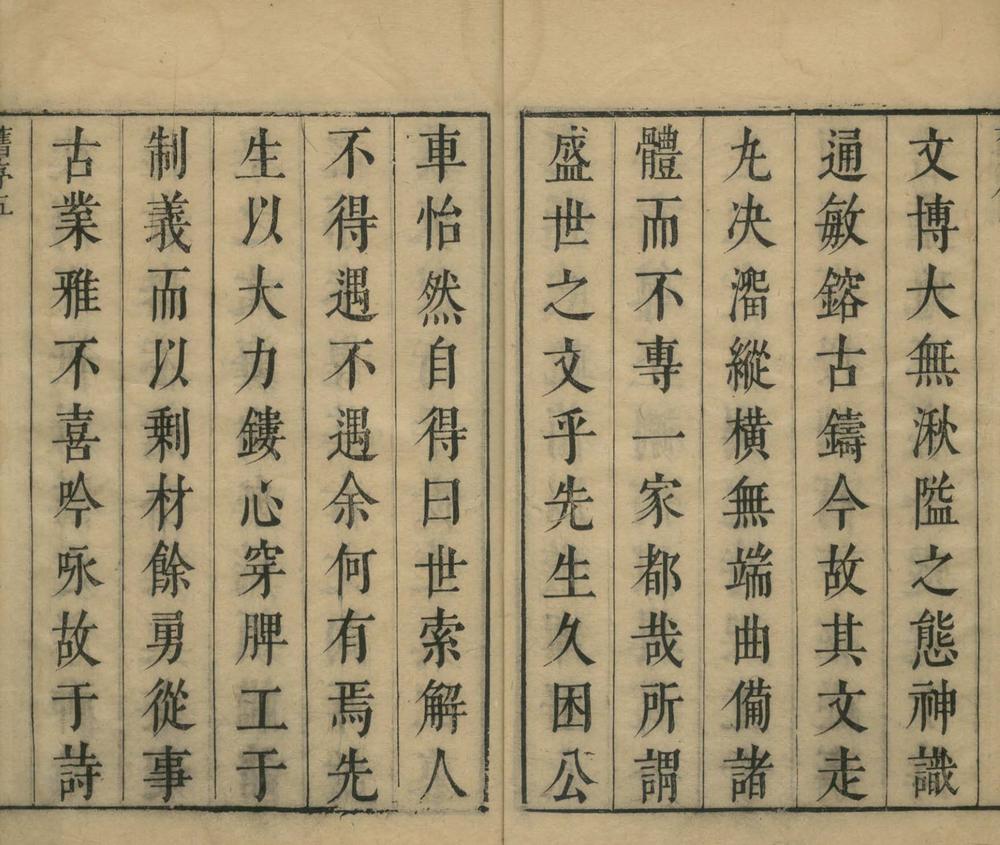 文博大無湫隘之態神識
通敏鎔古鑄今故其文走
九决澑縱橫無端曲備諸
體而不專一家都哉所謂
盛世之文乎先生久困公
車怡然自得曰世索解人
不得遇不遇余何有焉先
生以大力鏤心穿脾工于
制義而以剩材餘勇從事
古業雅不喜吟咏故于詩